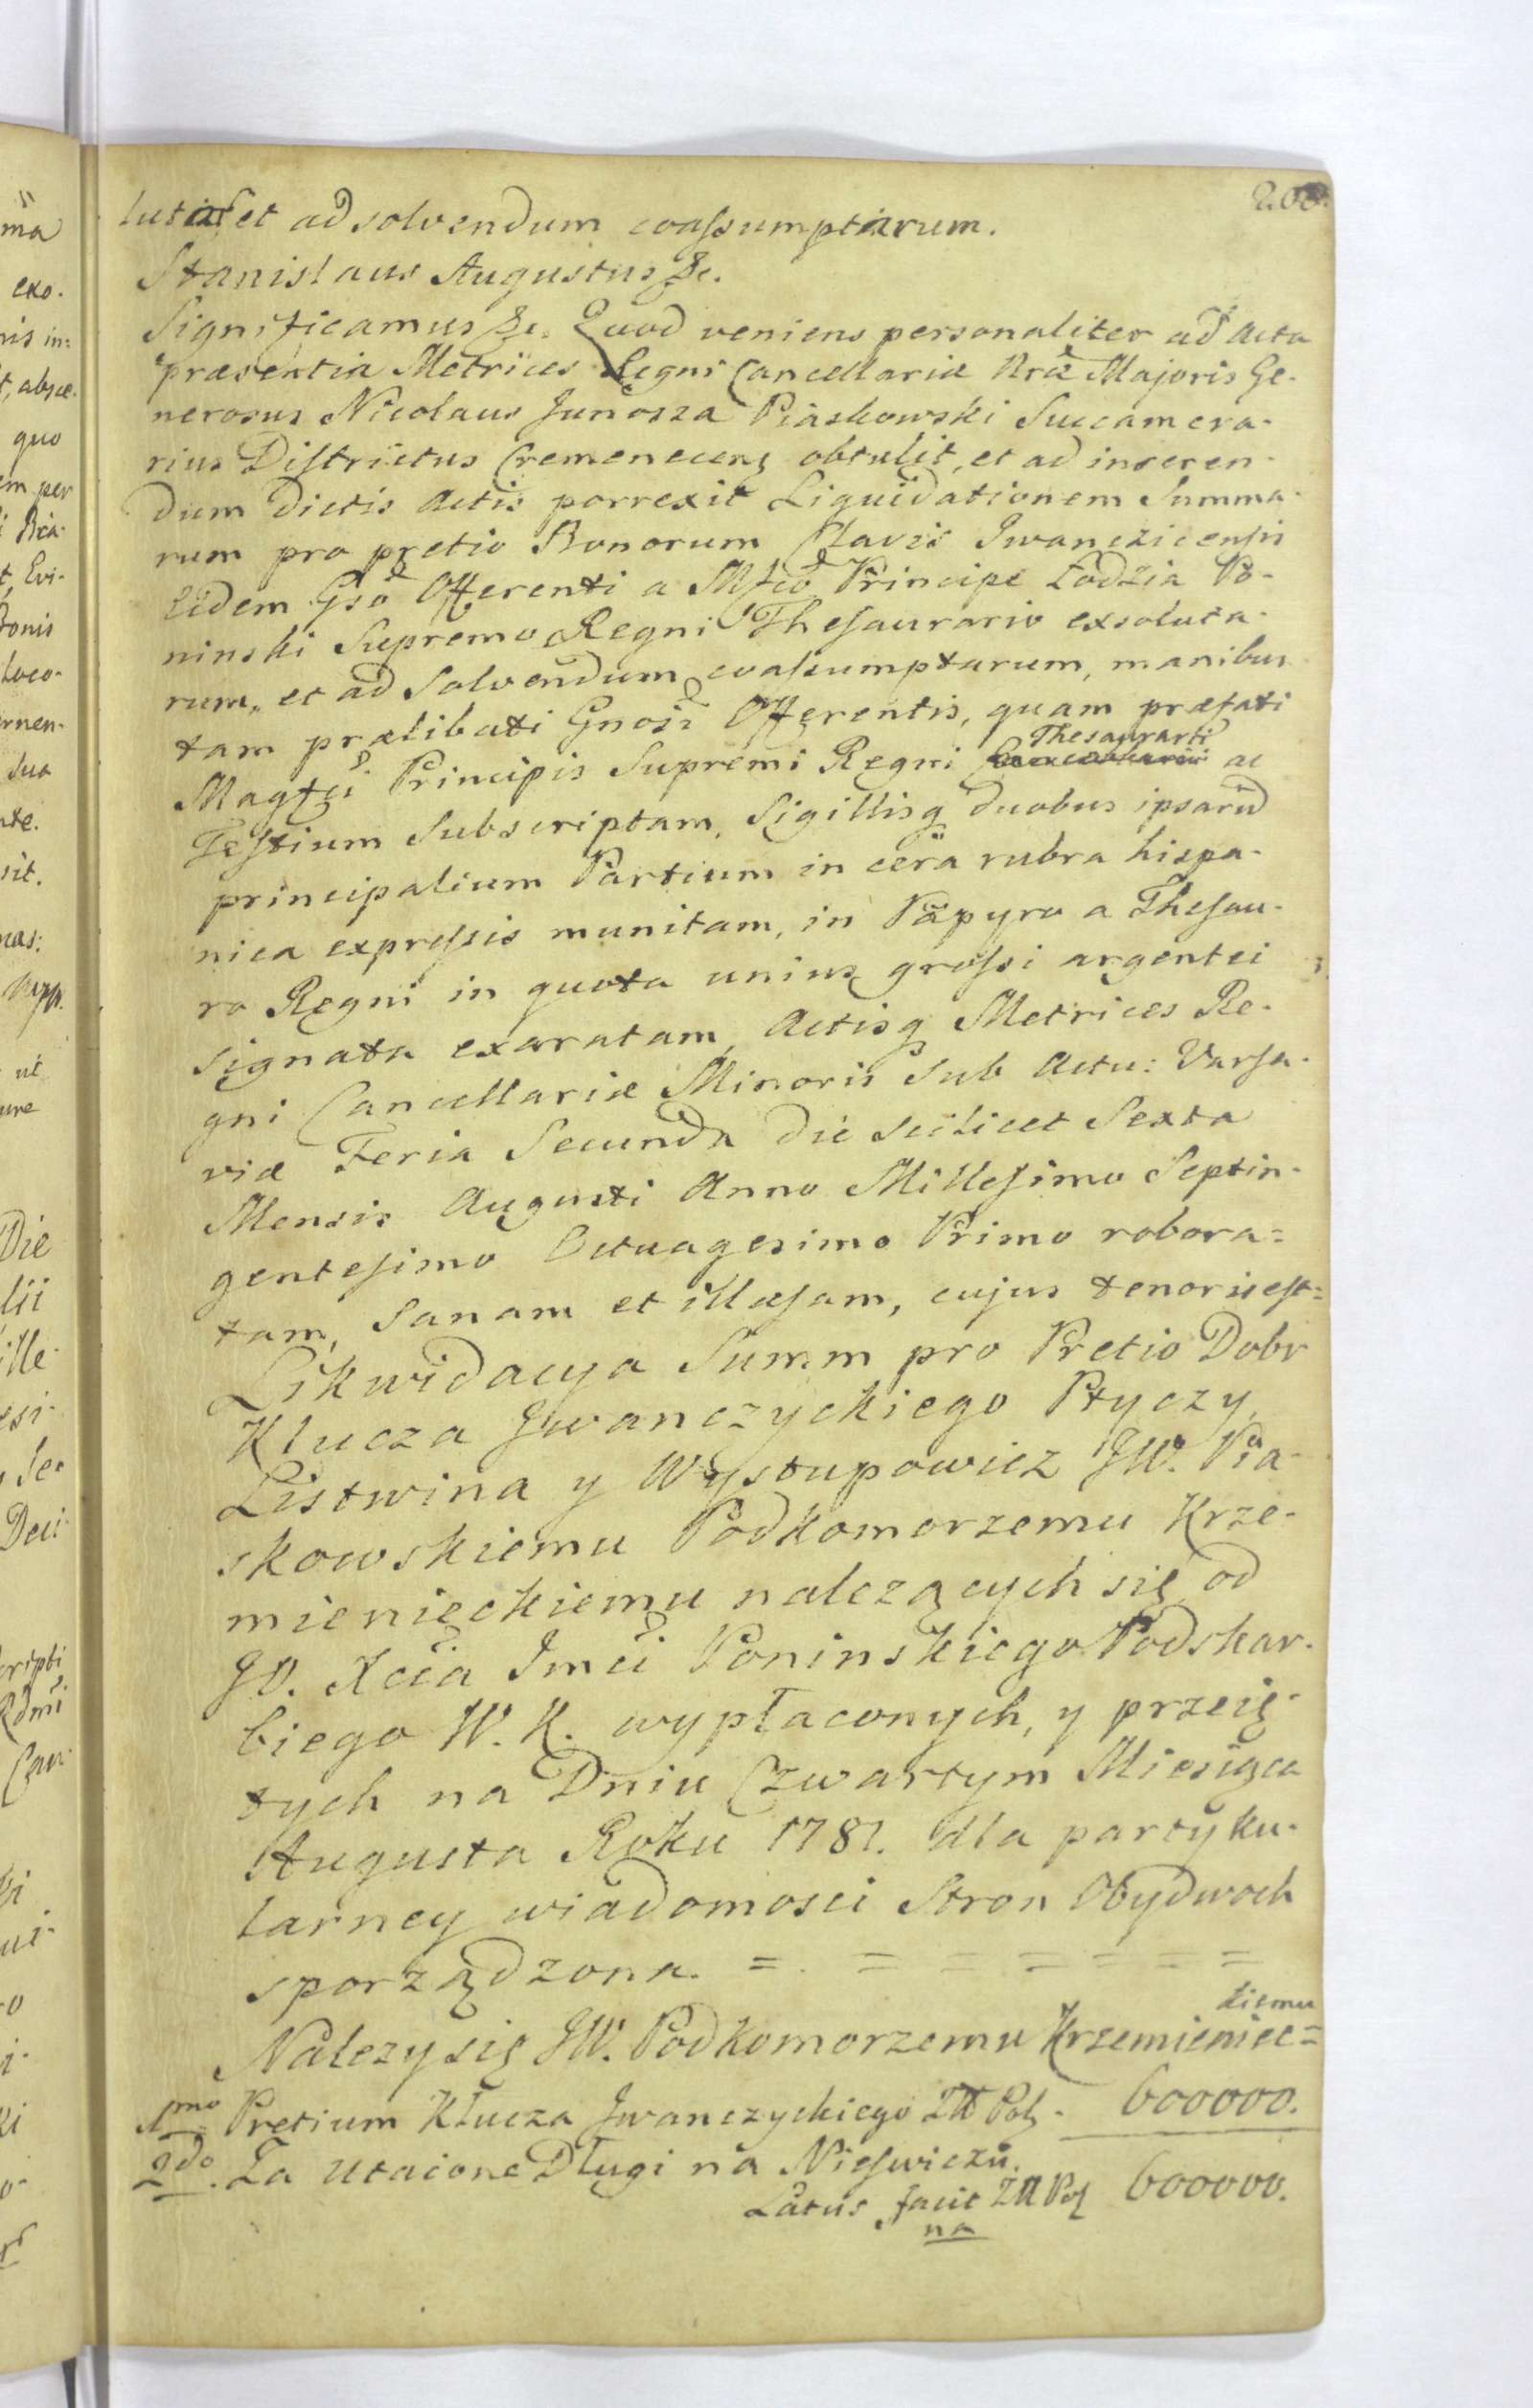 200.
lutar et ad solvendum coassumptarum.
Stanislaus Augustus &c.
Significamus &c. Quod veniens personaliter ad Acta
præsentia Metrices Regni Cancellariæ Nræ Majoris Ge-
nerosus Nicolaus Junosza Piaskowski Succamera-
rius Districtus Cremenecens obtulit, et ad inseren-
dum dictis Actis porrexit Liquidationem Summa-
rum pro pretio Bonorum Clavis Iwanczicensis
Eidem Gso Offerenti a Mfco Principe Łodzia Po-
ninski Supremo Regni Thesaurario exsoluta-
rum, et ad Solvendum coassumptarum, manibus
tam prælibati Gnosi Offerentis, quam præfati
Magfci Principis Supremi Regni Thesaurarii ac
Testium Subscriptam, Sigillisq duobus ipsarũ
principalium Partium in cera rubra hispa-
nica expressis munitam, in Papyro a Thesau-
ro Regni in quota unius grossi argentei
signata exaratam, Actisq Metrices Re-
gni Cancellariæ Minoris Sub Actu: Varsa-
viæ Feria Secunda die scilicet Sexta
Mensis Augusti Anno Millesimo Septin-
gentesimo Octuagesimo Primo robora=
tam, Sanam et illæsam, cujus tenoris est=
Likwidacya Summ pro Pretio Dobr
Klucza Jwanczyckiego Ptyczy,
Listwina y Wystupowicz JW. Pia-
skowskiemu Podkomorzemu Krze-
mienieckiemu nalezących się od
JO. Xcia Jmci Poninskiego Podskar-
biego W. K. wypłaconych, y przeię-
tych na Dniu Czwartym Miesiąca
Augusta Roku 1781. dla partyku-
larney wiadomosci Stron Obydwoch
sporządzona. = = = = = = = =
Nalezy się JW. Podkomorzemu Krzemieniec=
kiemu
1mo Pretium Klucza Jwanczyckiego Zł Pol. 600000.
2do. Za Utaione Długi na Nieswiczu.
Latus facit Zł Pol 600000.
na